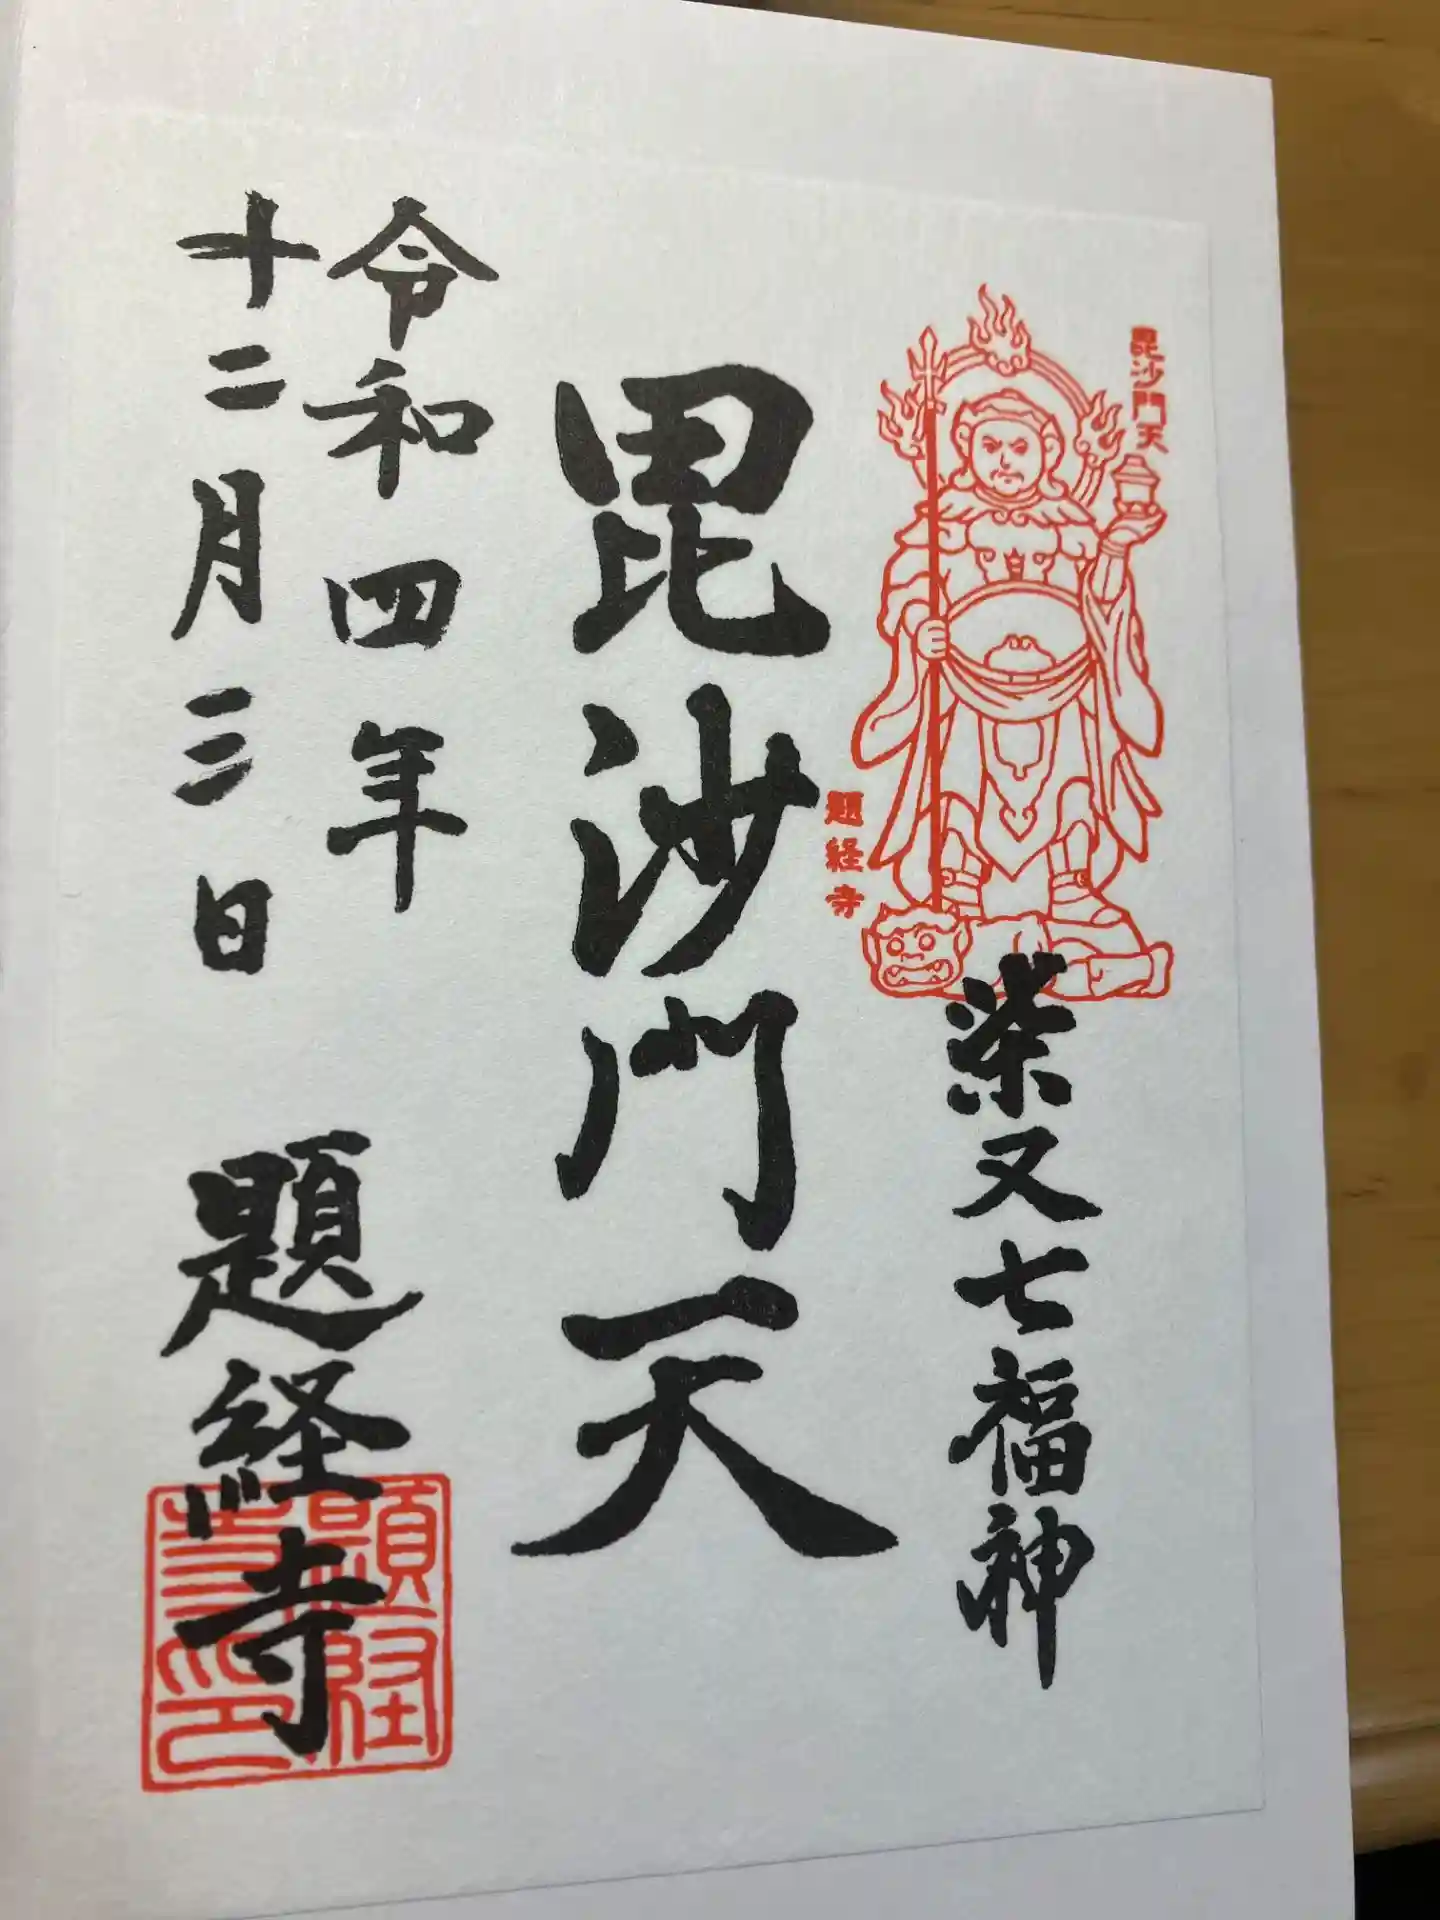 毘沙門天
柴又七福神
題経寺
毘沙門天
令和四年
十二月三日
題経寺
題経寺印